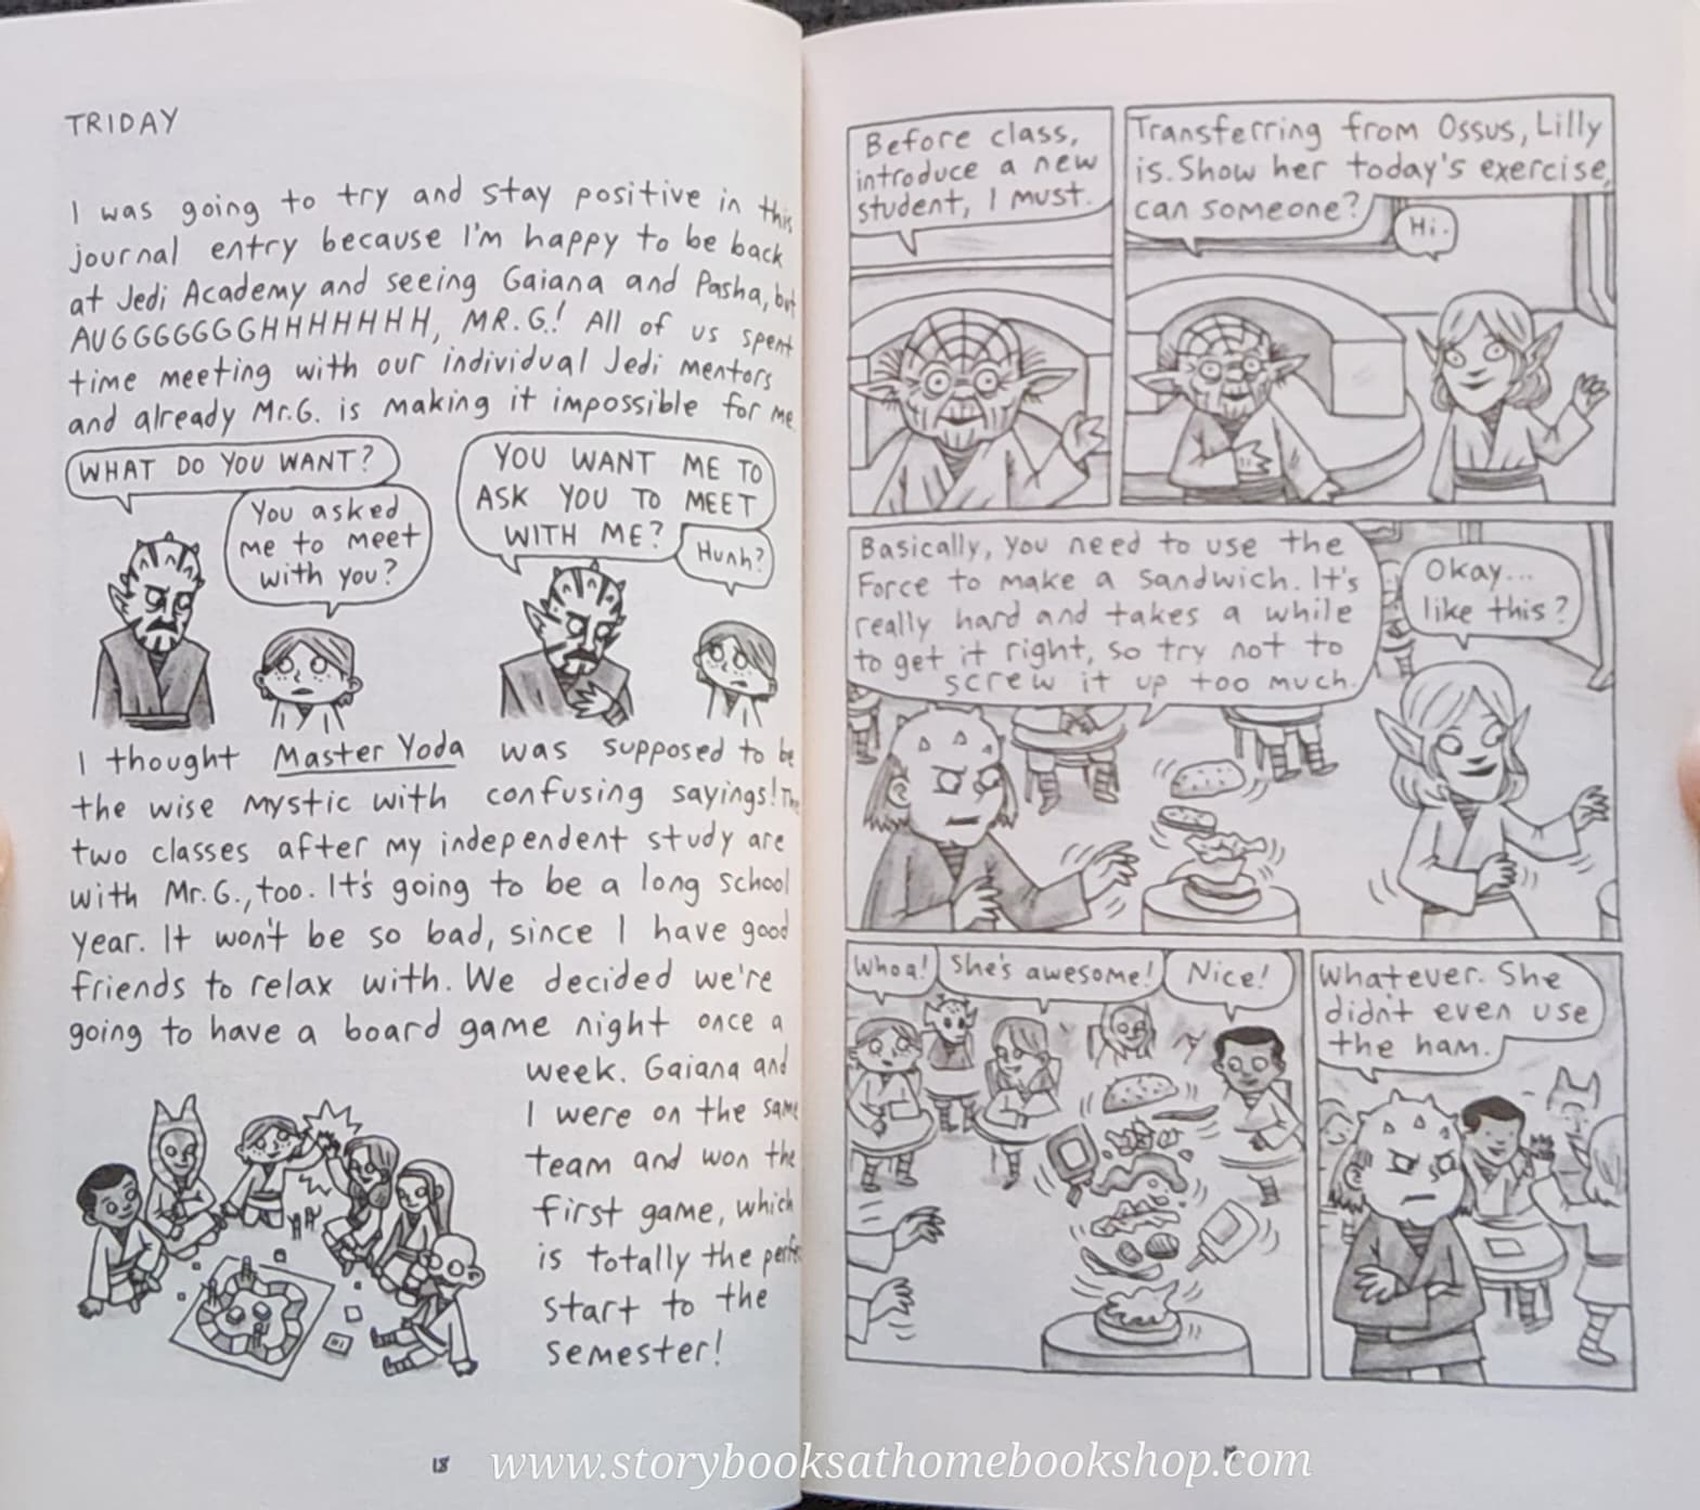 TRIDAY
I was going to try and stay positive in this
journal entry because I'm happy to be back
at Jedi Academy and seeing Gaiana and Pasha, but
AUGGGGGGGHHHHHHH, MR. G.! All of us spent
time meeting with our individual Jedi mentors
and already Mr.G. is making it impossible for me.
WHAT DO YOU WANT?
You asked
me to meet
with you?
YOU WANT ME TO
ASK YOU TO MEET
WITH ME?
Hunh?
I thought Master Yoda was supposed to be
the wise mystic with confusing sayings! The
two classes after my independent study are
with Mr. G., too. It's going to be a long school
year. It won't be so bad, since I have good
friends to relax with. We decided we're
going to have a board game night once a
week. Gaiana and
I were on the same
team and won the
first game, which
is totally the perfect
start to the
semester!
18
Before class,
introduce a new
student, I must.
Transferring from Ossus, Lilly
is. Show her today's exercise,
can someone?
Hi.
Basically, you need to use the
Force to make a sandwich. It's
really hard and takes a while
to get it right, so try not to
screw it up too much.
Okay...
like this?
Whoa!
She's awesome!
Nice!
Whatever. She
didn't even use
the ham.
www.storybooksathomebookshop.com